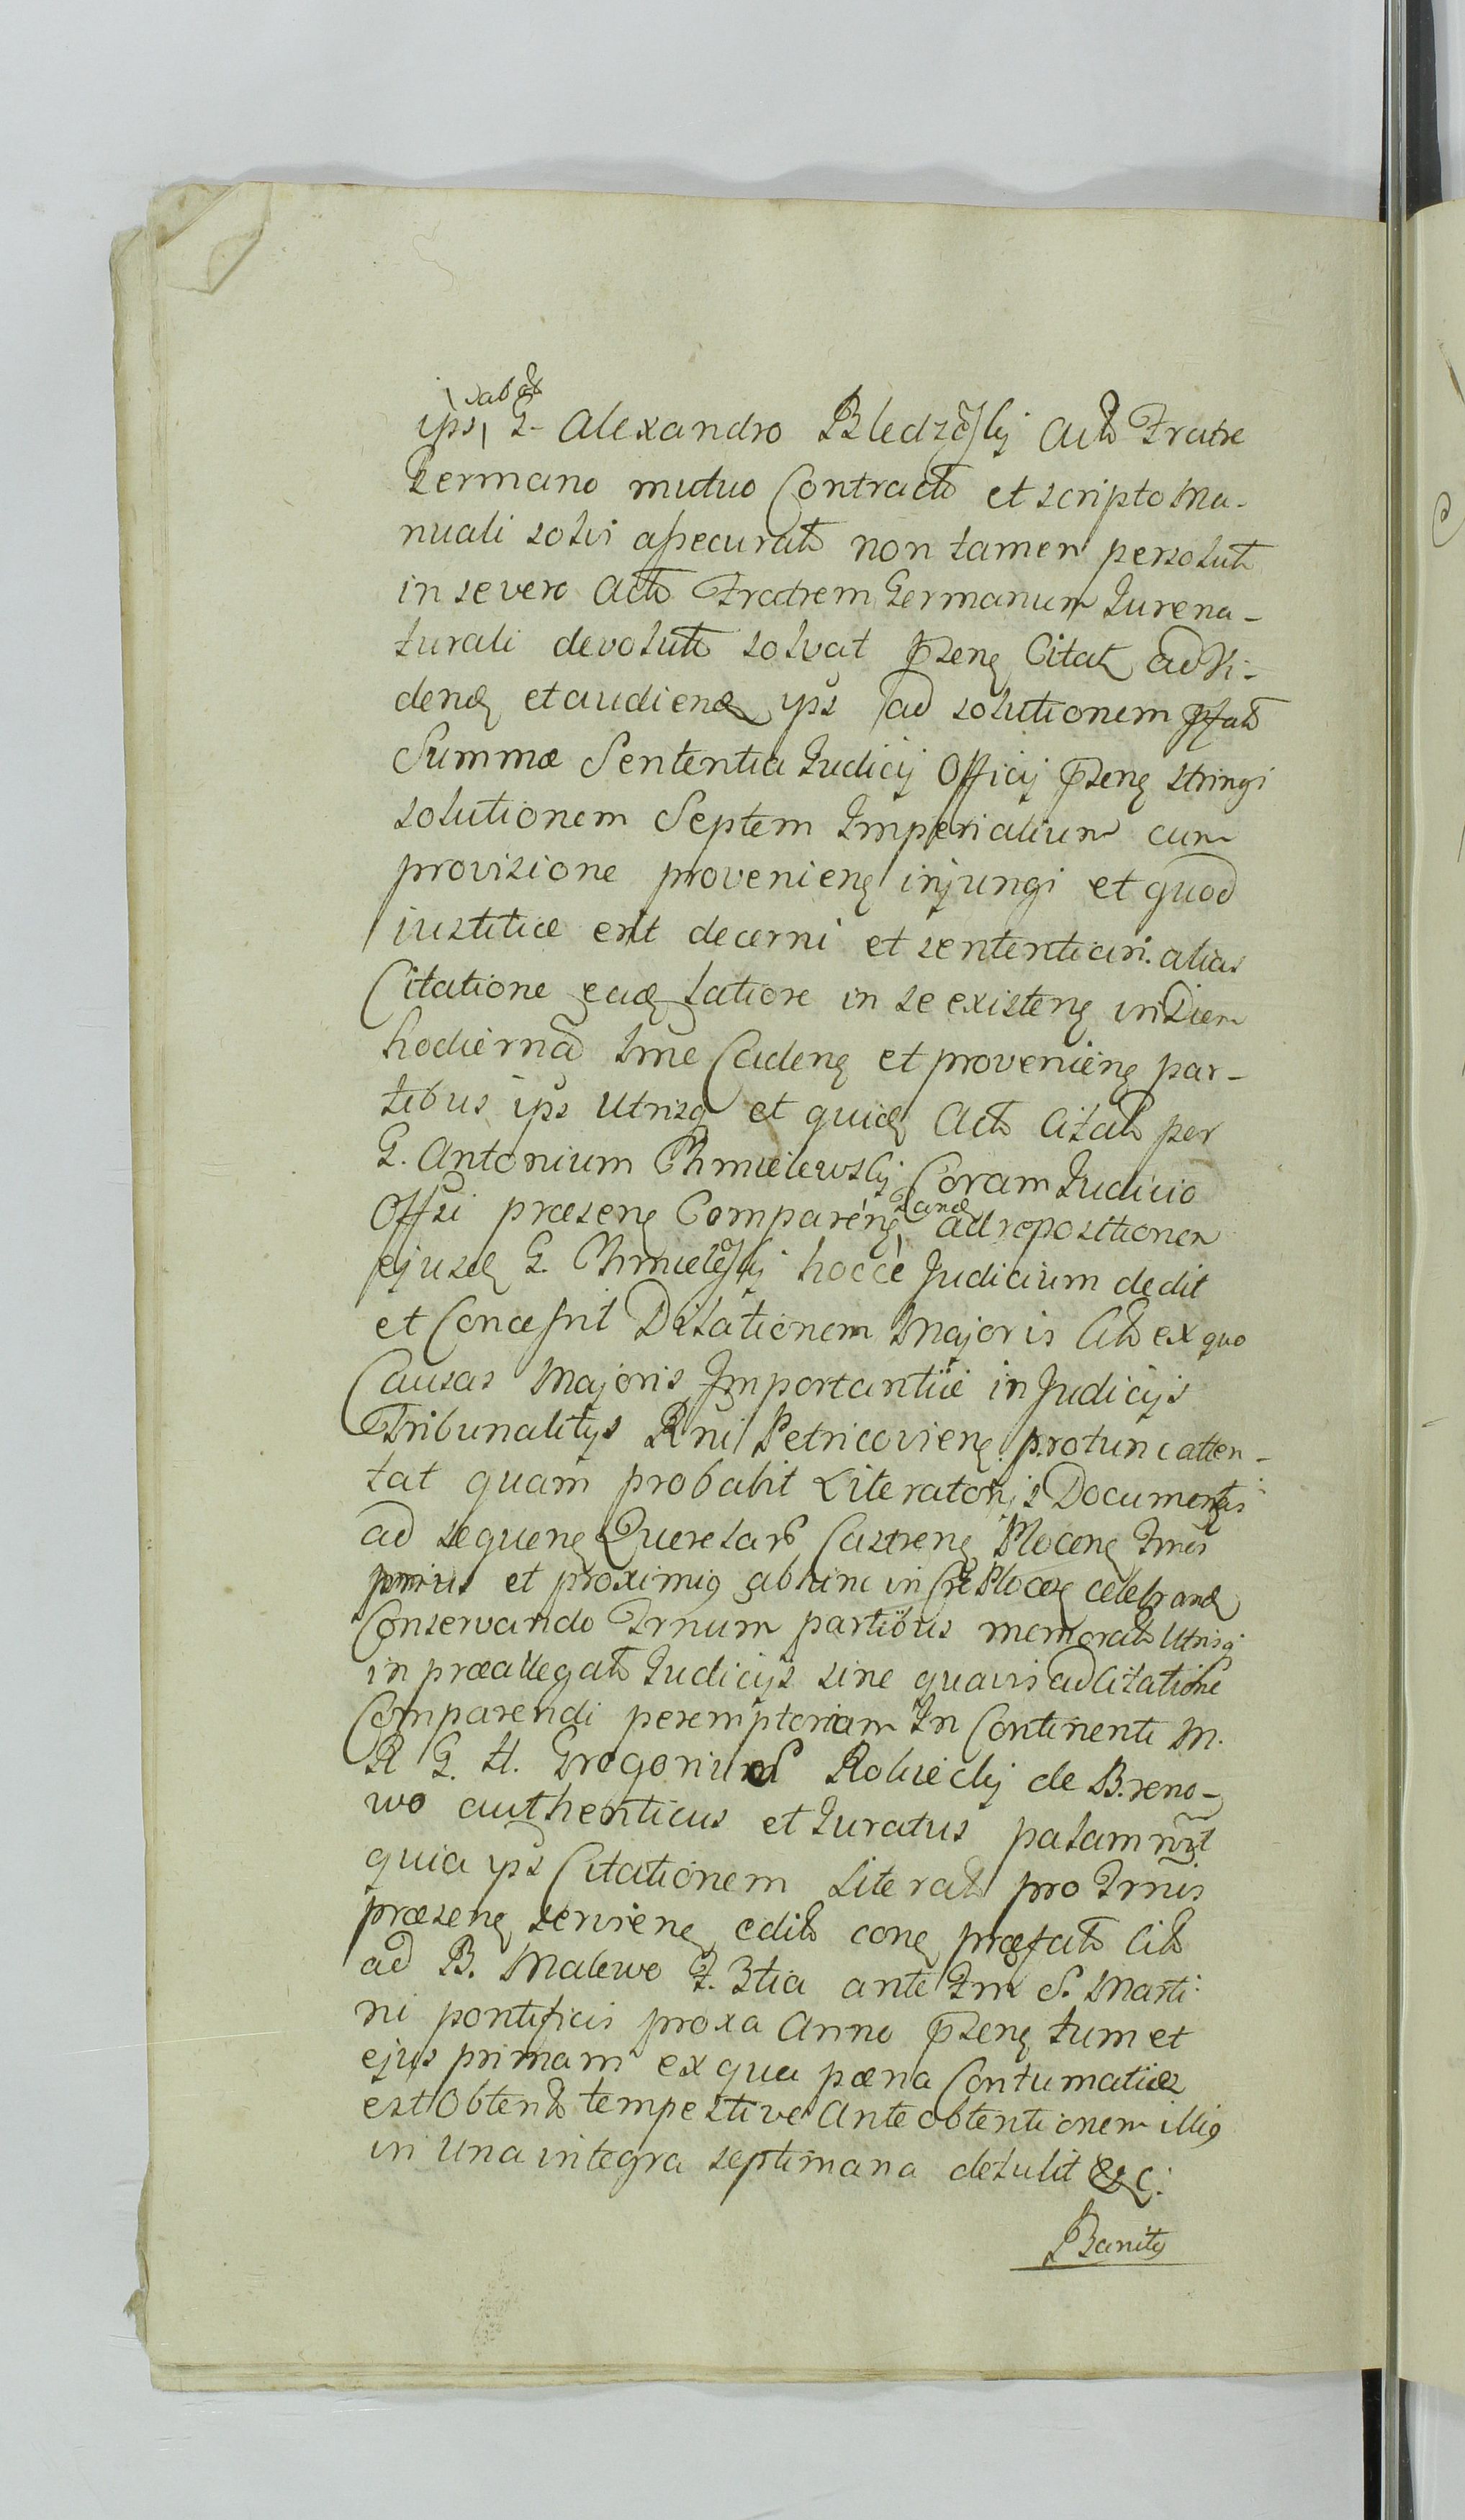 ips, G. Alexandro Bledzew̃skj Acto Fratre
Germano mutuo Contracto et scripto Ma-
nuali solvi assecurato non tamen persolut
in se vero Acto Fratrem Germanum Jurena-
turali devoluto solvat p̃sens Citat ad Vi-
dend et audiend ips ad solutionem pfato
Summæ Sententia Judicij Officij p̃sens stringi
solutionem Septem Imperialium cum
provisione proveniens injungi et quod
iustitiæ erit decerni et sententiari. alias
Citatione ead latiore in se existens in Diem
hodierna Tme Cadens et proveniens par-
tibus ips Utrisq et quid Acto Citato per
G. Antonium Chmielewskij Coram Judicio
Offsi præsens Comparens, ad repositionem
ejusd G. Chmielew̃skj hocce Judicium dedit
et Concessit Dilationem Majoris Cito ex quo
Causas Majoris Importantiæ in Judicijs
Tribunalitijs Rni Petricoviens protunc atten-
tat quam probabit Literatorijs Documentis
ad sequens Querelar Castrens Plocens Tmis
primis et proximis abhinc in Cro Ploceñ celebrand
Conservando Trnum partibus memorato Utrisq
in præallegato Judicijs sine quavis adcitatione
Comparendi peremptoriam In Continenti M.
R G. H. Gregorius Rolviedij de Breno-
wo authenticus et Juratus palam rñzt
quia ips Citationem Literato pro Trnis
præsens serviens edito cong præfato Cito
ad B. Malewo F. 3tia ante Fm S. Marti-
ni pontificis proxa Anno p̃sens tum et
ejus primam ex qua pœna Contumatiæ
est Obtento tempestive Ante obtentionem illiq
in Una integra septimana detulit &c:
Banits